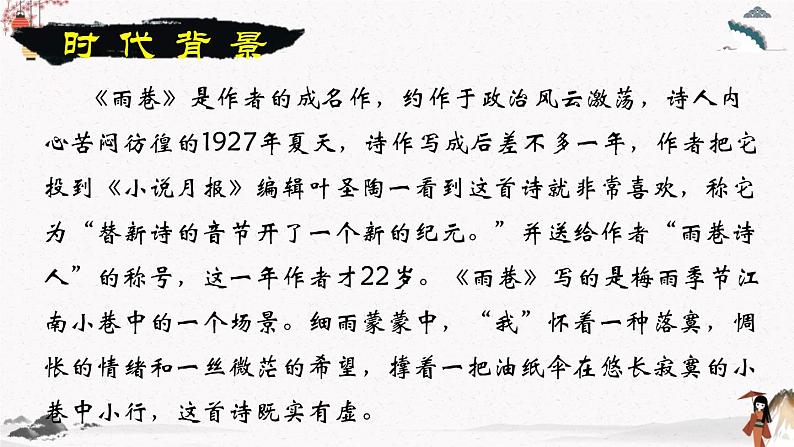 时代背景
《雨巷》是作者的成名作，约作于政治风云激荡，诗人内
心苦闷彷徨的1927年夏天，诗作写成后差不多一年，作者把它
投到《小说月报》编辑叶圣陶一看到这首诗就非常喜欢，称它
为“替新诗的音节开了一个新的纪元。”并送给作者“雨巷诗
人”的称号，这一年作者才22岁。《雨巷》写的是梅雨季节江
南小巷中的一个场景。细雨蒙蒙中，“我”怀着一种落寞，惆
怅的情绪和一丝微茫的希望，撑着一把油纸伞在悠长寂寞的小
巷中小行，这首诗既实有虚。